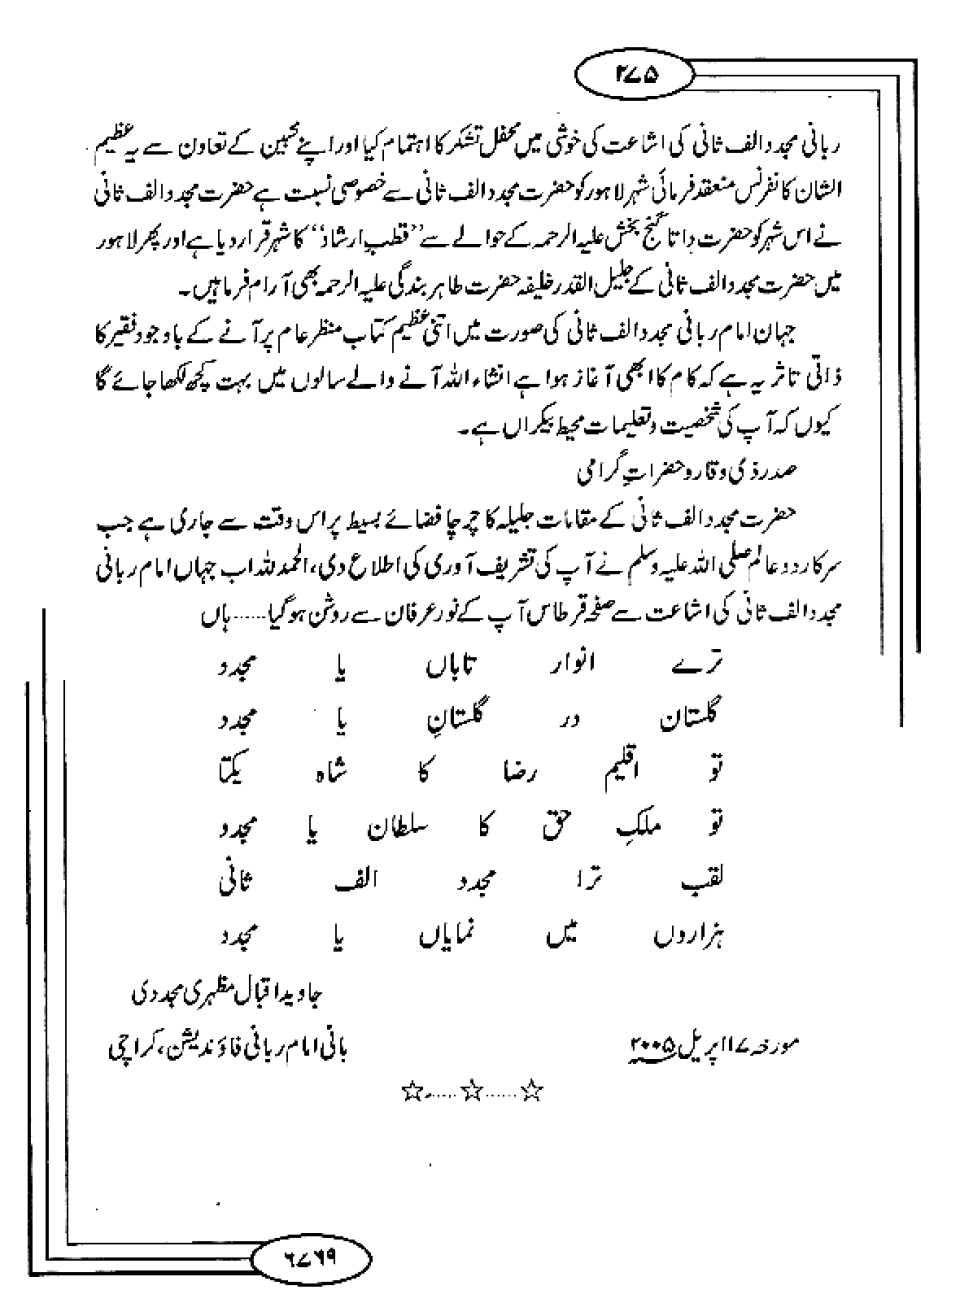 ۲۷۵
ربانی مجدد الف ثانی کی اشاعت کی خوشی میں محفل تشکر کا اہتمام کیا اور اپنے محبین کے تعاون سے یہ عظیم
الشان کانفرنس منعقد فرمائی شہر لاہور کو حضرت مجدد الف ثانی سے خصوصی نسبت ہے حضرت مجدد الف ثانی
نے اس شہر کو حضرت داتا گنج بخش علیہ الرحمہ کے حوالے سے ”قطبِ ارشاد“ کا شہر قرار دیا ہے اور پھر لاہور
میں حضرت مجدد الف ثانی کے جلیل القدر خلیفہ حضرت طاہر بندگی علیہ الرحمہ بھی آرام فرما ہیں۔
جہان امام ربانی مجدد الف ثانی کی صورت میں اتنی عظیم کتاب منظر عام پر آنے کے باوجود فقیر کا
ذاتی تاثر یہ ہے کہ کام کا ابھی آغاز ہوا ہے انشاء اللہ آنے والے سالوں میں بہت کچھ لکھا جائے گا
کیوں کہ آپ کی شخصیت و تعلیمات محیط بیکراں ہے۔
صدر ذی وقار و حضراتِ گرامی
حضرت مجدد الف ثانی کے مقامات جلیلہ کا چرچا فضائے بسیط پر اس وقت سے جاری ہے جب
سرکار دو عالم صلی اللہ علیہ وسلم نے آپ کی تشریف آوری کی اطلاع دی، الحمد للہ اب جہاں امام ربانی
مجدد الف ثانی کی اشاعت سے صفحہ قرطاس آپ کے نور عرفان سے روشن ہو گیا......ہاں
ترے انوار تاباں یا مجدد
گلستان در گلستانِ یا مجدد
تو اقلیم رضا کا شاہ یکتا
تو ملکِ حق کا سلطان یا مجدد
لقب ترا مجدد الف ثانی
ہزاروں میں نمایاں یا مجدد
جاوید اقبال مظہری مجددی
مورخہ ۱۷ اپریل ۲۰۰۵ بانی امام ربانی فاؤنڈیشن، کراچی
☆......☆......☆
۶۷۶۹